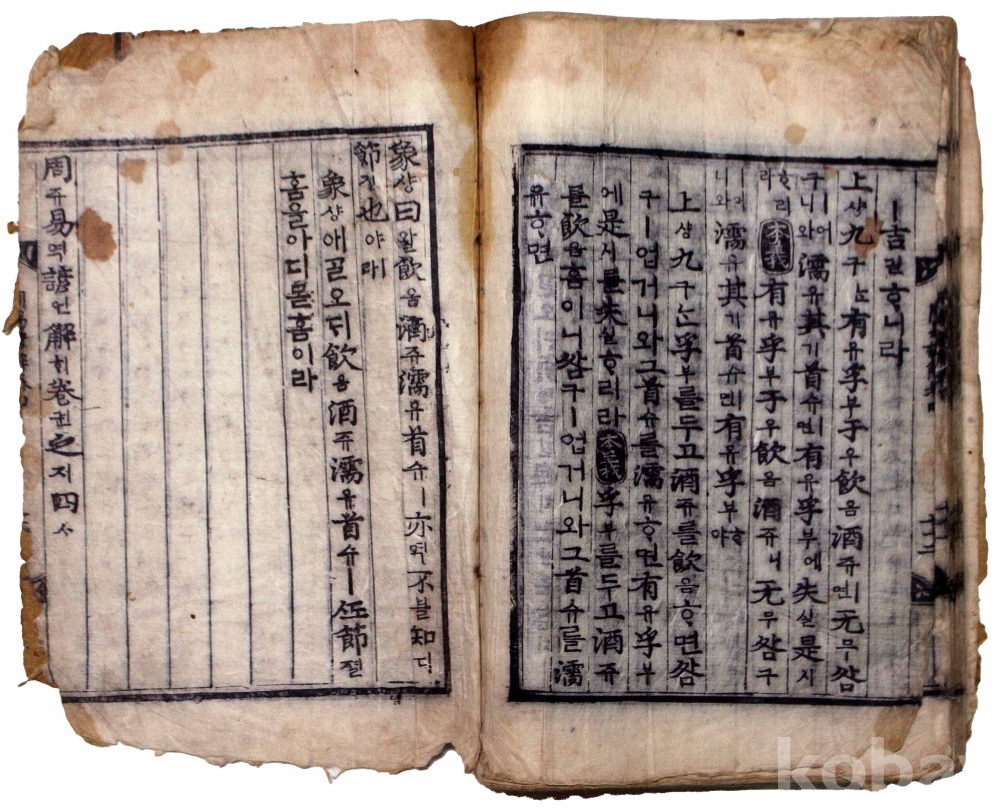 ㅣ吉길ᄒᆞ니라
上샹九구ᄂᆞᆫ有유孚부于우飮음酒쥬ㅣ면无무咎
구ㅣ어니와濡유其기首슈ㅣ면有유孚부에失실是시
ᄒᆞ리라本義有유孚부于우飮음酒쥬ㅣ니无무咎구
ㅣ니와濡유其기首슈ㅣ면有유孚부ᄒᆞ야
上샹九구ᄂᆞᆫ孚부를두고酒쥬를飮음ᄒᆞ면咎
구ㅣ업거니와그首슈를濡유ᄒᆞ면有유孚부
에是시를失실ᄒᆞ리라本義孚부를두고酒쥬
를飮음홈이니咎구ㅣ업거니와그首슈를濡
유ᄒᆞ면
象샹曰왈飮음酒쥬濡유首슈ㅣ亦역不블知디
節졀也야ㅣ라
象샹애ᄀᆞᆯ오ᄃᆡ飮음酒쥬濡유首슈ㅣᄯᅩ節졀
홈을아디몯홈이라
周쥬易역諺언解ᄒᆡ卷권之지四ᄉᆞ
koba